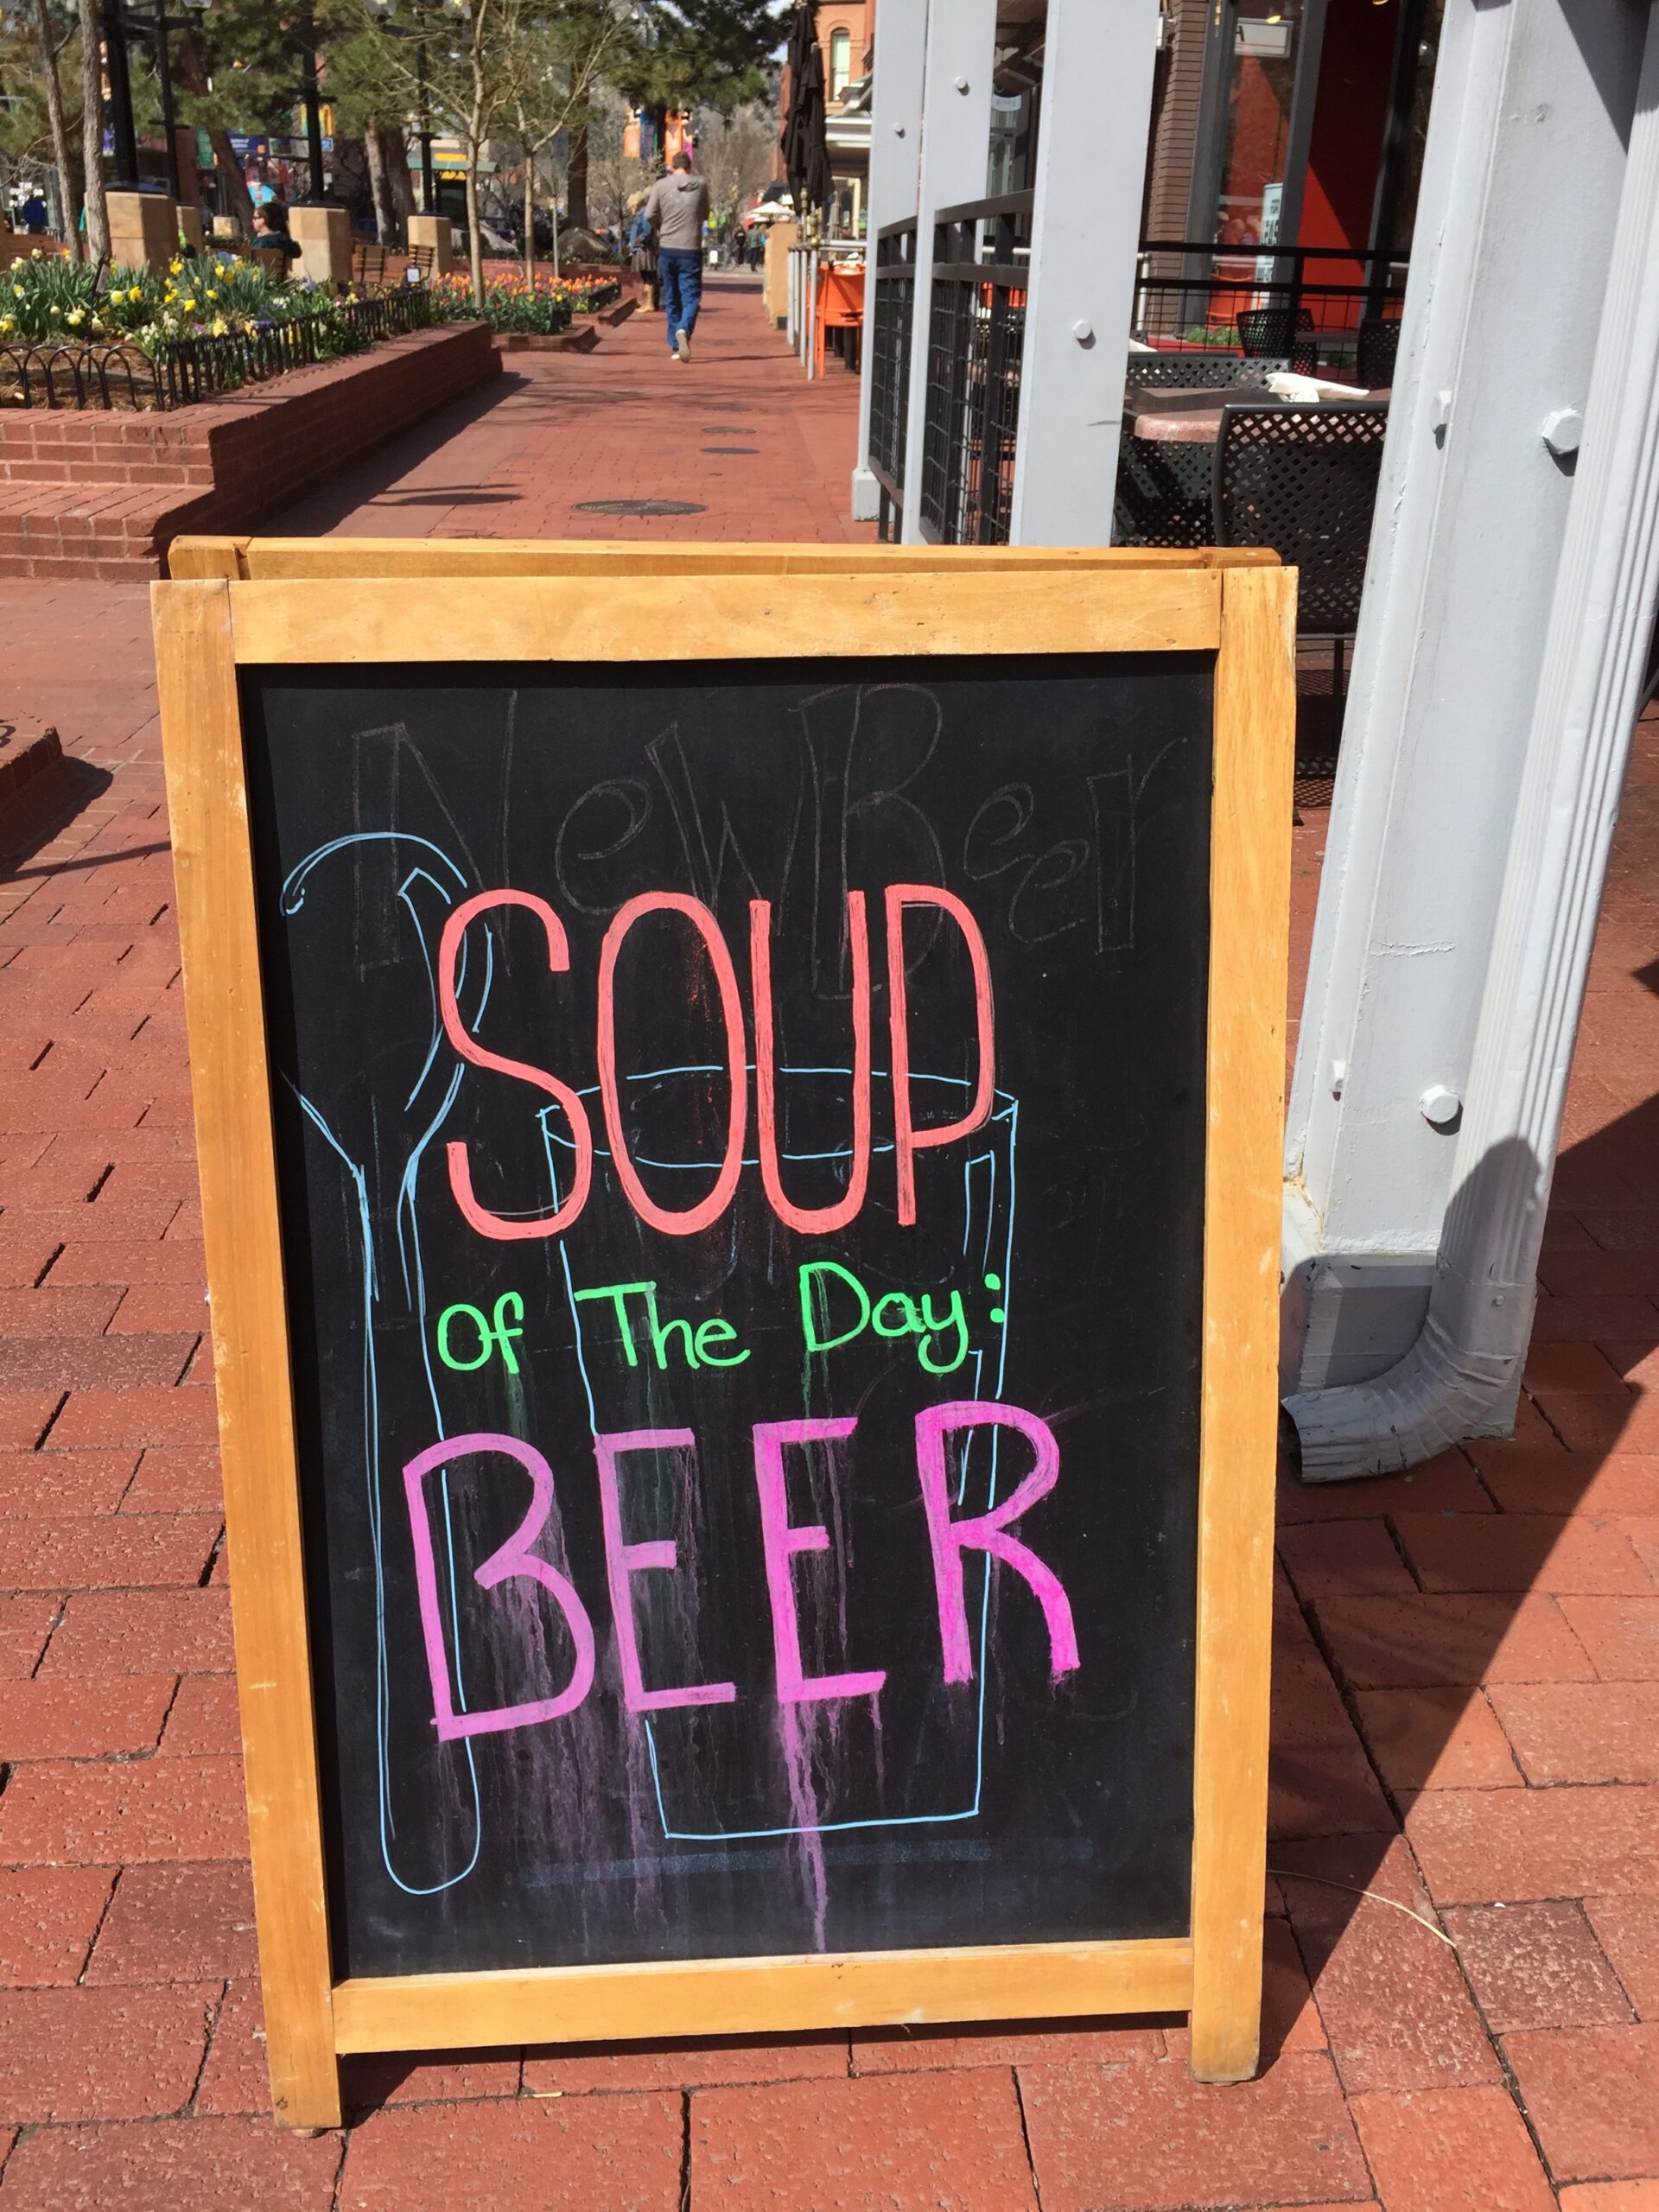 New Beer
SOUP
Of The Day:
BEER